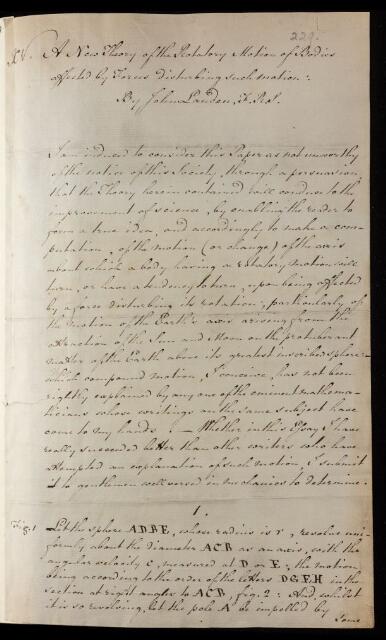 229.
XV. A New Theory of the Rotatory Motion of Bodies
affected by Forces disturbing such motion:
By John Landen, F.R.S.
I am induced to consider this Paper as not unworthy
of the notice of this Society, through a persuasion,
that the Theory herein contained will conduce to the
improvement of science, by enabling the reader to
form a true idea, and accordingly to make a com-
putation, of the motion (or change) of the axis
about which a body having a rotatory motion will
turn, or have a tendency to turn, upon being affected
by a force disturbing its rotation; particularly of
the motion of the Earth's axis arising from the
attraction of the Sun and Moon on the protuberant
matter of the Earth above its greatest inscribed sphere:
which compound motion, I conceive, has not been
rightly explained by any one of the eminent mathema-
ticians whose writings on the same subject have
come to my hands. — Whether in this Essay I have
really succeeded better than other writers who have
attempted an explanation of such motion, I submit
it to gentlemen well versed in mechanics to determine.
1.
Fig. 1 Let the sphere ADBE, whose radius is r, revolve uni-
formly about the diameter ACB as an axis, with the
angular velocity c, measured at D or E; the motion
being according to the order of the letters DGFH in the
section at right angles to ACB, fig. 2: And, whilst
it is so revolving, let the pole A be impelled by
some